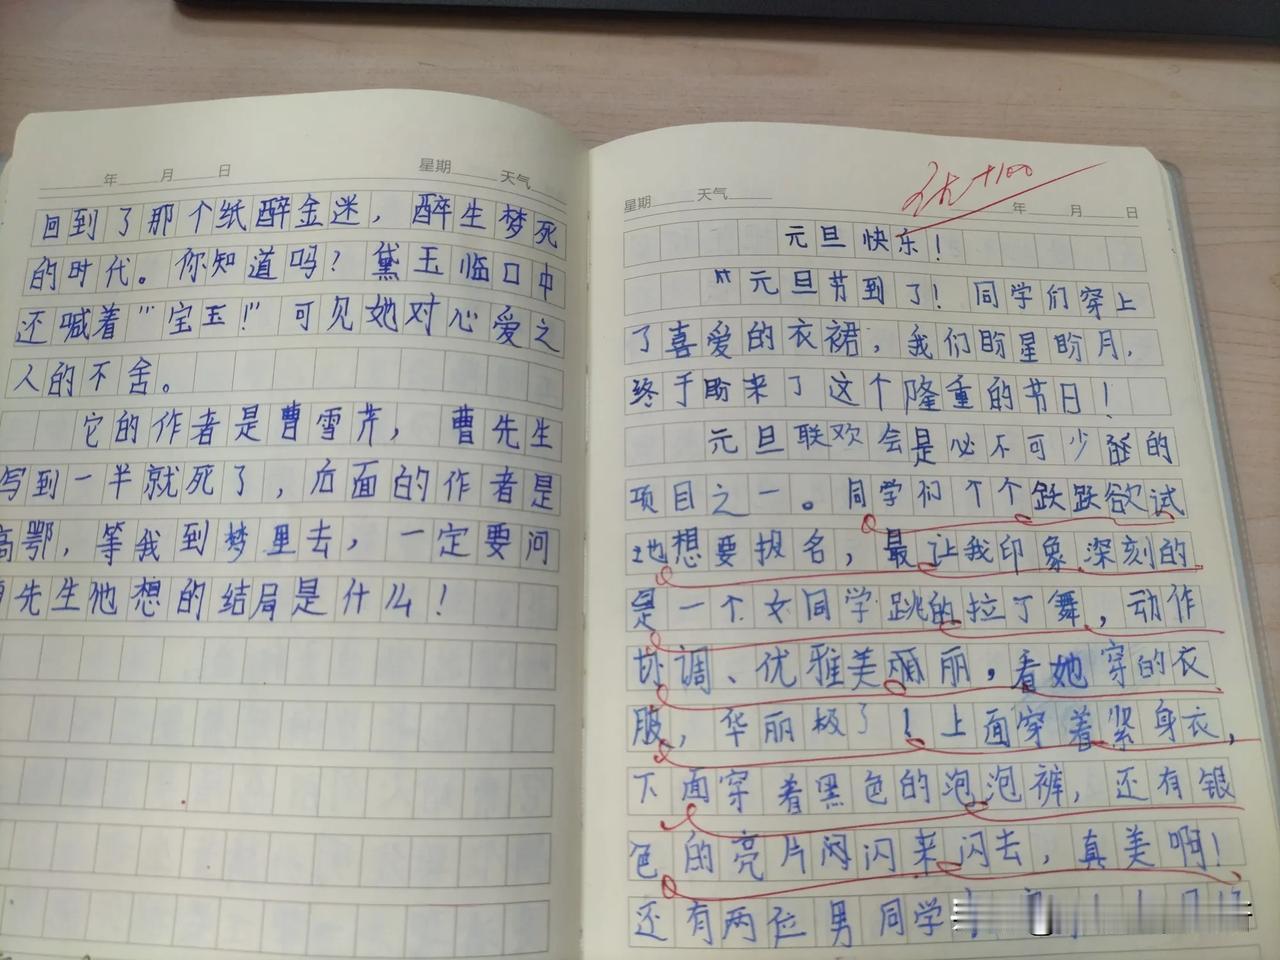 年 月 日 星期 天气
回到了那个纸醉金迷，醉生梦死
的时代。你知道吗？黛玉临口中
还喊着“宝玉！”可见她对心爱之
人的不舍。
它的作者是曹雪芹，曹先生
写到一半就死了，后面的作者是
高鄂，等我到梦里去，一定要问
先生他想的结局是什么！
星期 天气 年 月 日
+100
元旦快乐！
“元旦节到了！同学们穿上
了喜爱的衣裙，我们盼星盼月，
终于盼来了这个隆重的节日！
元旦联欢会是必不可少的
项目之一。同学们个个跃跃欲试
地想要报名，最让我印象深刻的
是一个女同学跳的拉丁舞，动作
协调、优雅美丽，看她穿的衣
服，华丽极了！上面穿着紧身衣，
下面穿着黑色的泡泡裤，还有银
色的亮片闪闪来闪去，真美啊！
还有两位男同学